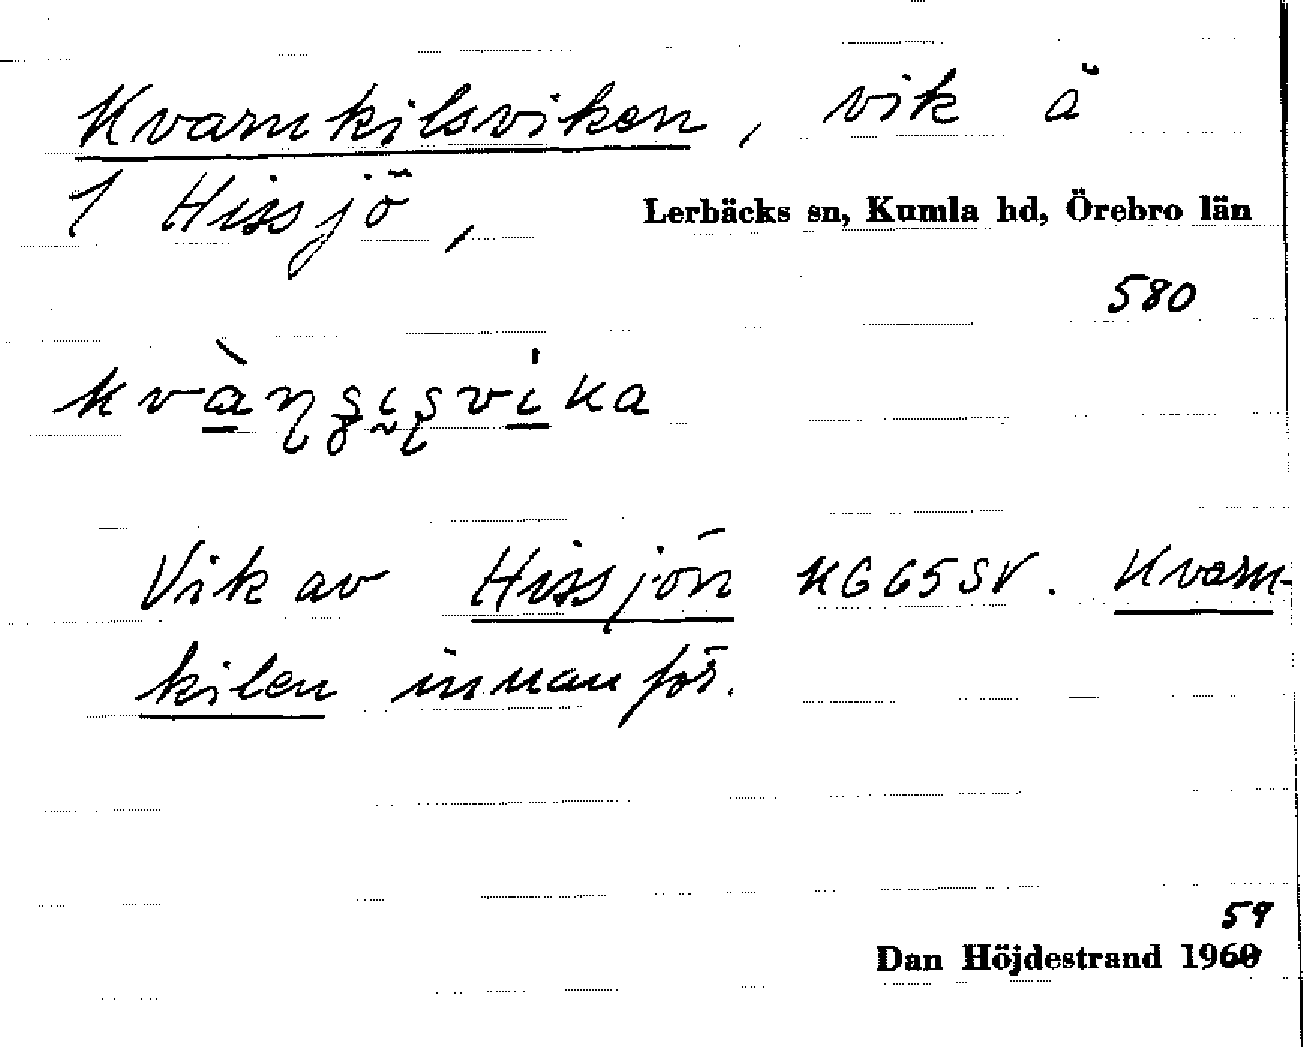 Kvarnkilsviken, vik å
1 Hissjö,
Lerbäcks sn, Kumla hd, Örebro län
580
Vik av Hissjön KG65SV. Kvarn-
kilen innanför.
59
Dan Höjdestrand 1960